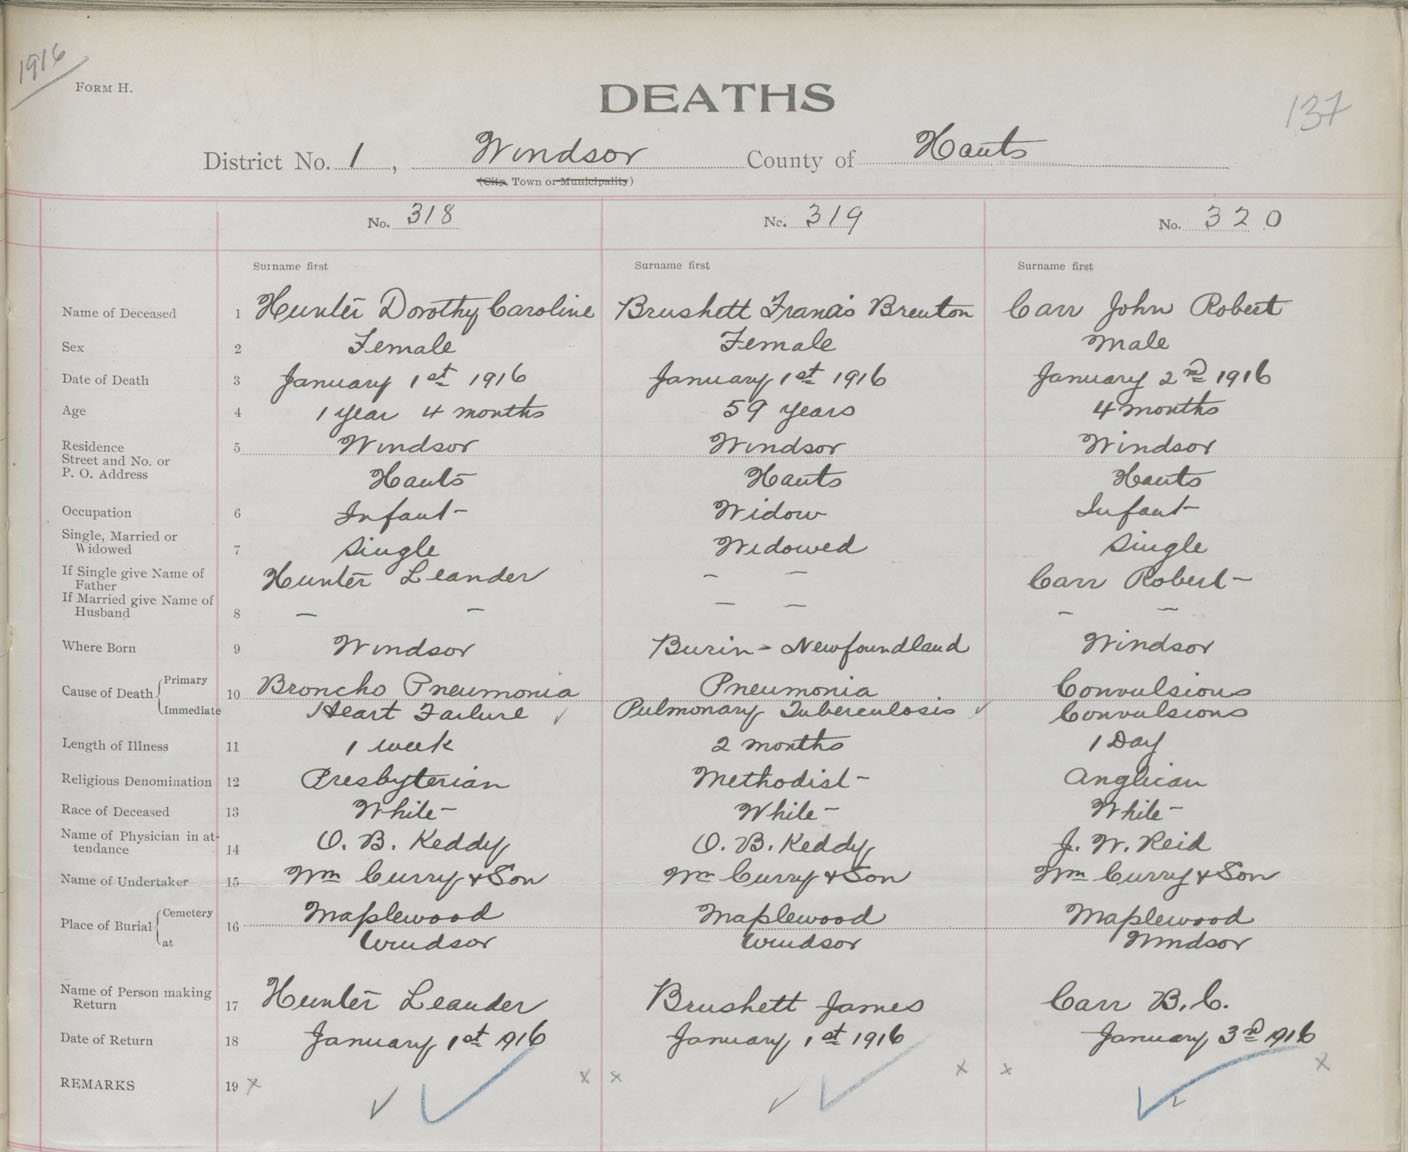 1916
FORM H.
DEATHS
137
District No. 1, Windsor County of Hants
(City, Town or Municipality)
No. 318 No. 319 No. 320
Surname first Surname first Surname first
Name of Deceased 1 Hunter Dorothy Caroline Brushett Francis Brenton Carr John Robert
Sex 2 Female Female Male
Date of Death 3 January 1st 1916 January 1st 1916 January 2nd 1916
Age 4 1 year 4 months 59 years 4 months
Residence 5 Windsor Windsor Windsor
Street and No. or
P. O. Address Hants Hants Hants
Occupation 6 Infant Widow Infant
Single, Married or
Widowed 7 Single Widowed Single
If Single give Name of
Father Hunter Leander — — Carr Robert
If Married give Name of
Husband 8 — — — — — —
Where Born 9 Windsor Burin - Newfoundland Windsor
Cause of Death Primary 10 Broncho Pneumonia Pneumonia Convulsions
Immediate Heart Failure ✓ Pulmonary Tuberculosis ✓ Convulsions
Length of Illness 11 1 week 2 months 1 Day
Religious Denomination 12 Presbyterian Methodist Anglican
Race of Deceased 13 White White White
Name of Physician in at-
tendance 14 O. B. Keddy O. B. Keddy J. W. Reid
Name of Undertaker 15 Wm Curry & Son Wm Curry & Son Wm Curry & Son
Place of Burial Cemetery 16 Maplewood Maplewood Maplewood
at Windsor Windsor Windsor
Name of Person making
Return 17 Hunter Leander Brushett James Carr B. C.
Date of Return 18 January 1st 1916 January 1st 1916 January 3rd 1916
REMARKS 19 x x x x x x
✓ ✓ ✓ ✓ ✓ ✓